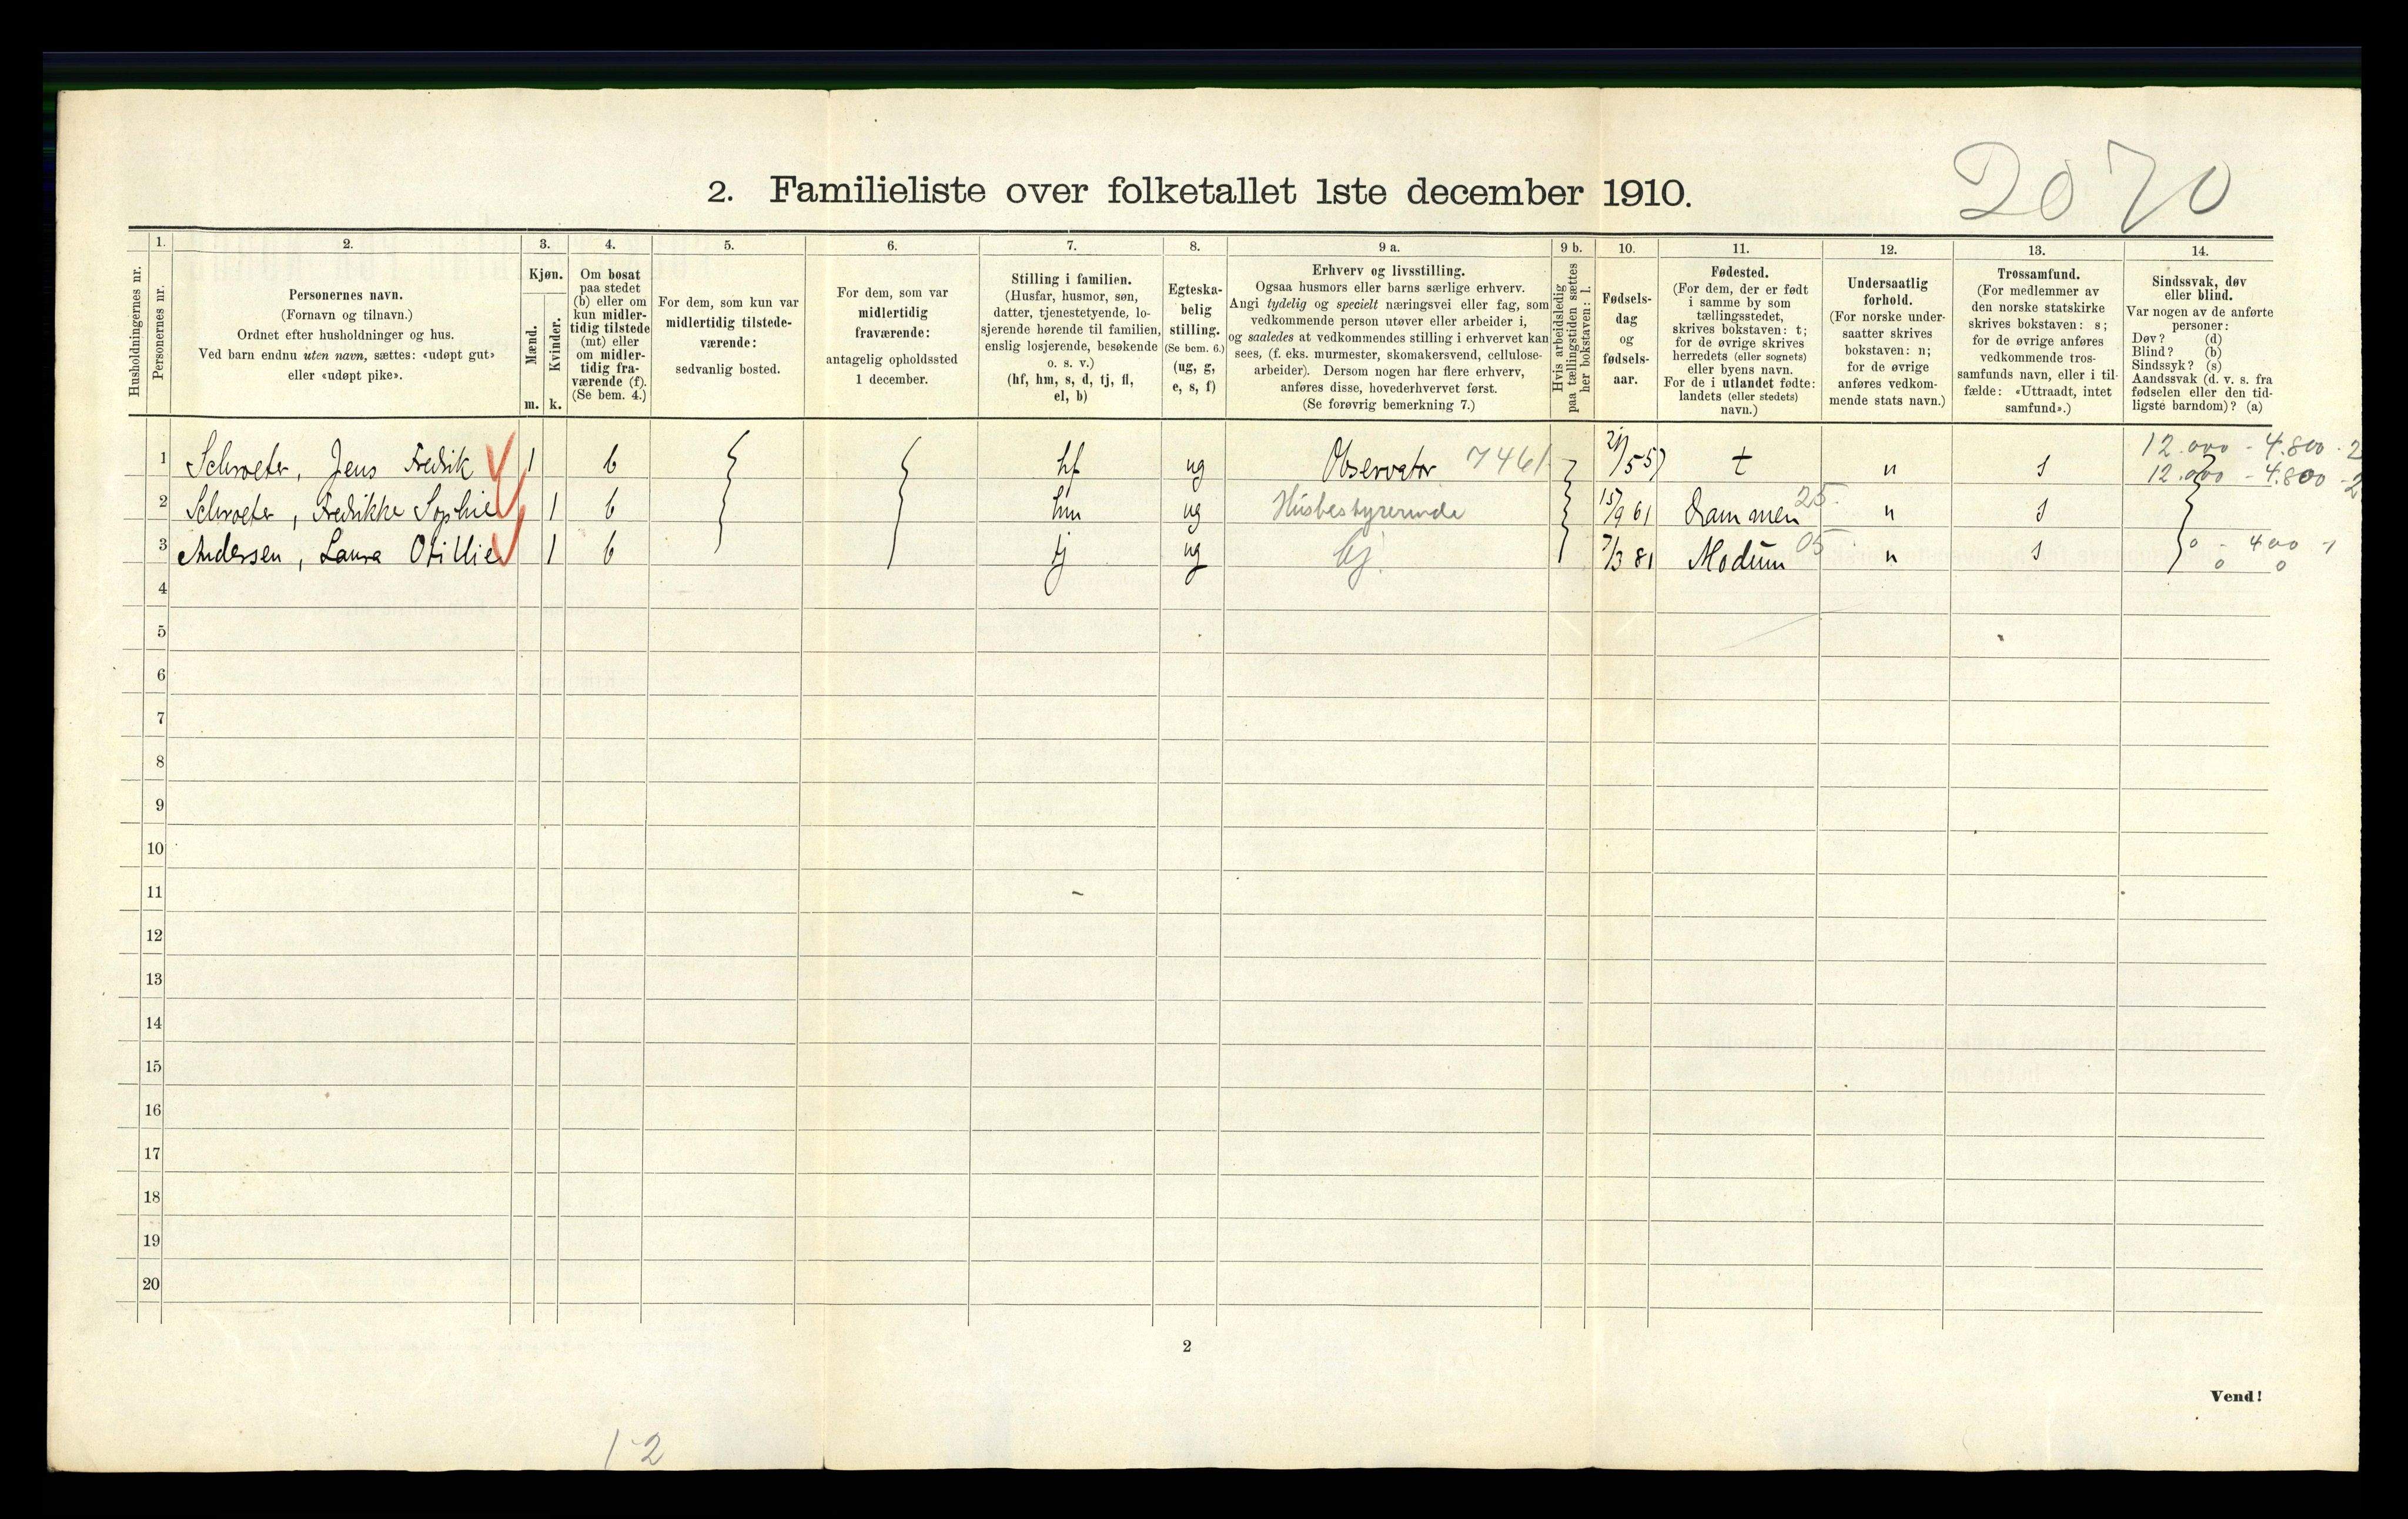 2070
2. Familieliste over folketallet 1ste december 1910.
Husholdningernes nr.
1.
Personernes nr.
2.
Personernes navn.
(Fornavn og tilnavn.)
Ordnet efter husholdninger og hus.
Ved barn endnu uten navn, sættes: «udøpt gut»
eller «udøpt pike».
3.
Kjøn.
Mænd.
Kvinder.
m. k.
4.
Om bosat
paa stedet
(b) eller om
kun midler-
tidig tilstede
(mt) eller
om midler-
tidig fra-
værende (f).
(Se bem. 4.)
5.
For dem, som kun var
midlertidig tilstede-
værende:
sedvanlig bosted.
6.
For dem, som var
midlertidig
fraværende:
antagelig opholdssted
1 december.
7.
Stilling i familien.
(Husfar, husmor, søn,
datter, tjenestetyende, lo-
sjerende hørende til familien,
enslig losjerende, besøkende
o. s. v.)
(hf, hm, s, d, tj, fl,
el, b)
8.
Egteska-
belig
stilling.
(Se bem. 6.)
(ug, g,
e, s, f)
9 a.
Erhverv og livsstilling.
Ogsaa husmors eller barns særlige erhverv.
Angi tydelig og specielt næringsvei eller fag, som
vedkommende person utøver eller arbeider i,
og saaledes at vedkommendes stilling i erhvervet kan
sees, (f. eks. murmester, skomakersvend, cellulose-
arbeider). Dersom nogen har flere erhverv,
anføres disse, hovederhvervet først.
(Se forøvrig bemerkning 7.)
9 b.
Hvis arbeidsledig
paa tællingstiden sættes
her bokstaven: l.
10.
Fødsels-
dag
og
fødsels-
aar.
11.
Fødested.
(For dem, der er født
i samme by som
tællingsstedet,
skrives bokstaven: t;
for de øvrige skrives
herredets (eller sognets)
eller byens navn.
For de i utlandet fødte:
landets (eller stedets)
navn.)
12.
Undersaatlig
forhold.
(For norske under-
saatter skrives
bokstaven: n;
for de øvrige
anføres vedkom-
mende stats navn.)
13.
Trossamfund.
(For medlemmer av
den norske statskirke
skrives bokstaven: s;
for de øvrige anføres
vedkommende tros-
samfunds navn, eller i til-
fælde: «Uttraadt, intet
samfund».)
14.
Sindssvak, døv
eller blind.
Var nogen av de anførte
personer:
Døv? (d)
Blind? (b)
Sindssyk? (s)
Aandssvak (d. v. s. fra
fødselen eller den tid-
ligste barndom)? (a)
12.000 - 4.800 - 2
1 Schroeter, Jens Fredrik 1 b hf ug Observator 7461 /55 t n s 12.000 - 4.800 - 2
2 Schroeter, Fredrikke Sophie 1 b hm ug Husbestyrerinde 15/9 61 Drammen 25 n s
3 Andersen, Laura Otillie 1 b tj ug tj. 7/3 81 Modum 05 n s 0 - 400 - 1
0 0
4
5
6
7
8
9
10
11
12
13
14
15
16
17
18
19
20
2
Vend!
1-2